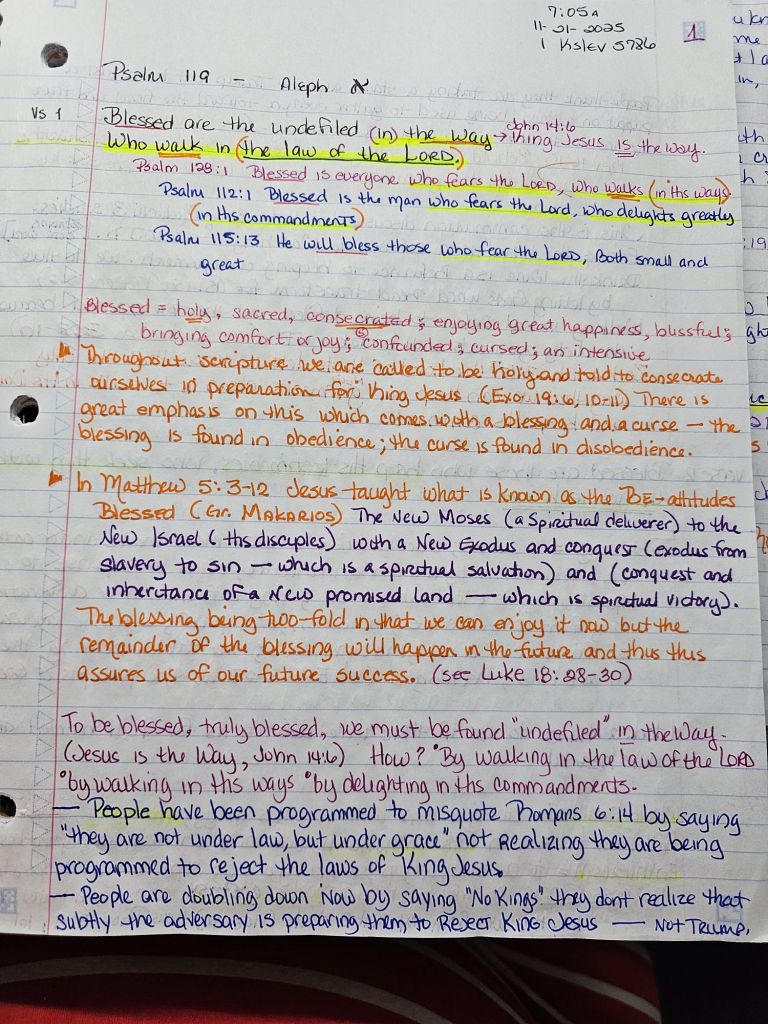 7:05A
11-21-2025
1 Kslev 5786
1
Psalm 119 - Aleph א
Vs 1 Blessed are the undefiled (in) the way → John 14:6 King Jesus is the way.
Who walk in (the law of the LORD.)
Psalm 128:1 Blessed is everyone who fears the LORD, who walks (in His ways)
Psalm 112:1 Blessed is the man who fears the Lord, who delights greatly
(in His commandments)
Psalm 115:13 He will bless those who fear the LORD, Both small and
great
Blessed = holy, sacred, consecrated; enjoying great happiness, blissful;
bringing comfort or joy; confounded; cursed; an intensive
Throughout scripture we are called to be holy and told to consecrate
ourselves in preparation for King Jesus (Exo. 19:6, 10-11) There is
great emphasis on this which comes with a blessing and a curse — the
blessing is found in obedience; the curse is found in disobedience.
In Matthew 5:3-12 Jesus taught what is known as the BE-attitudes
Blessed (Gr. MAKARIOS) The New Moses (a Spiritual deliverer) to the
New Israel (His disciples) with a New Exodus and conquest (exodus from
slavery to sin — which is a spiritual salvation) and (conquest and
inheritance of a New promised land — which is spiritual victory).
The blessing being two-fold in that we can enjoy it now but the
remainder of the blessing will happen in the future and thus this
assures us of our future success. (see Luke 18:28-30)
To be blessed, truly blessed, we must be found "undefiled" in the Way.
(Jesus is the Way, John 14:6) How? °By walking in the law of the LORD
°by walking in His ways °by delighting in His commandments.
— People have been programmed to misquote Romans 6:14 by saying
"they are not under law, but under grace" not Realizing they are being
programmed to reject the laws of King Jesus.
— People are doubling down now by saying "No Kings" they dont realize that
subtly the adversary is preparing them to Reject King Jesus — Not Trump.